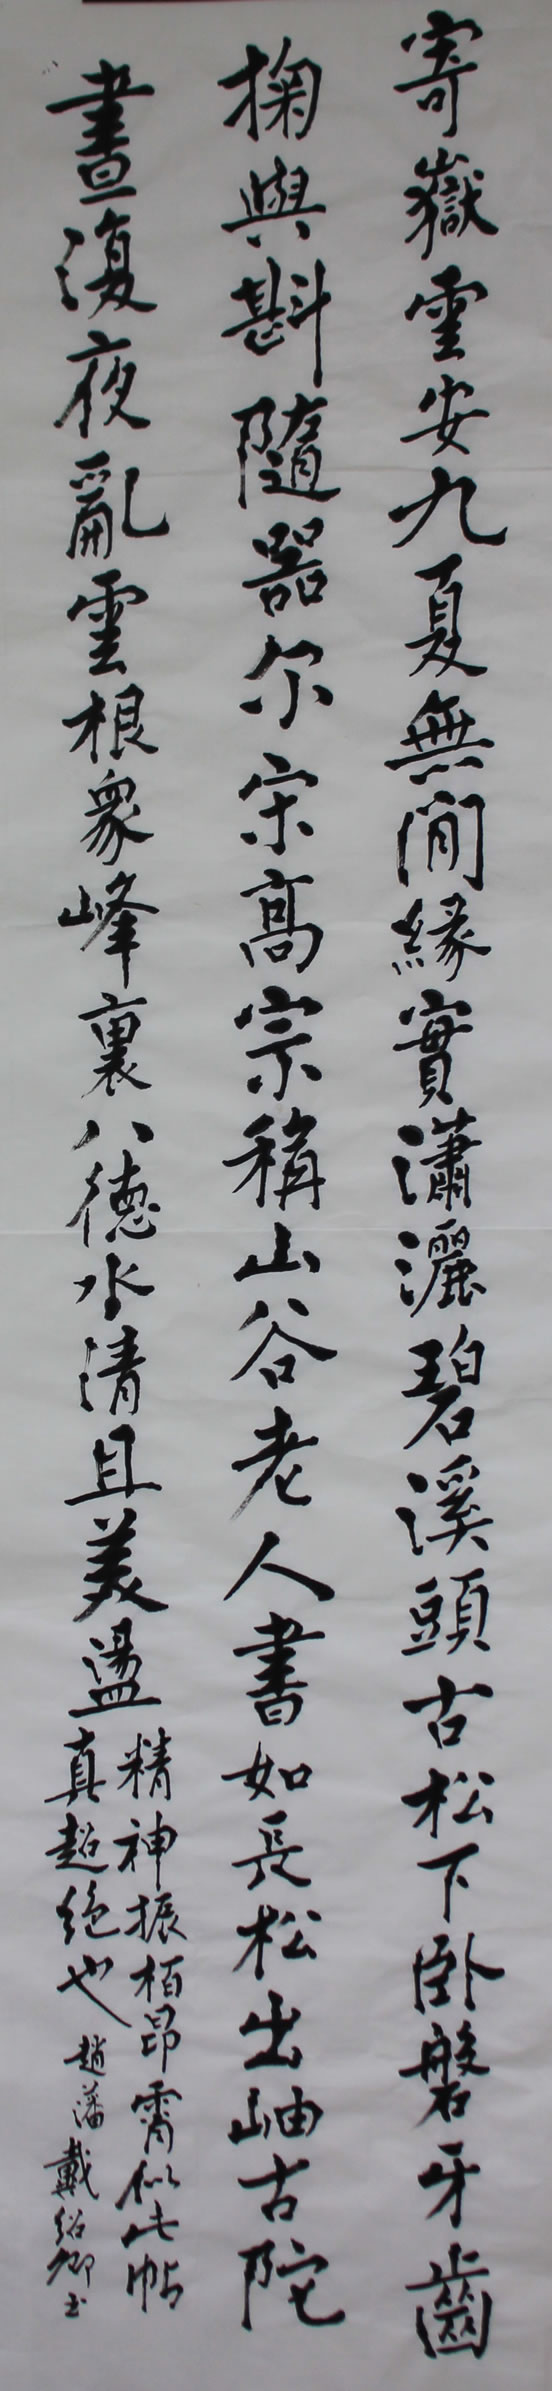 寄嶽雲安九夏無閒緣實瀟灑碧溪頭古松下卧磐牙齒
掬與斟隨器尔宋高宗稱山谷老人書如長松出岫古陀
晝復夜亂雲根衆峰裏八德水清且美盪
精神振栢昂霄似此帖
真超絶也
趙藩戴紹卿書